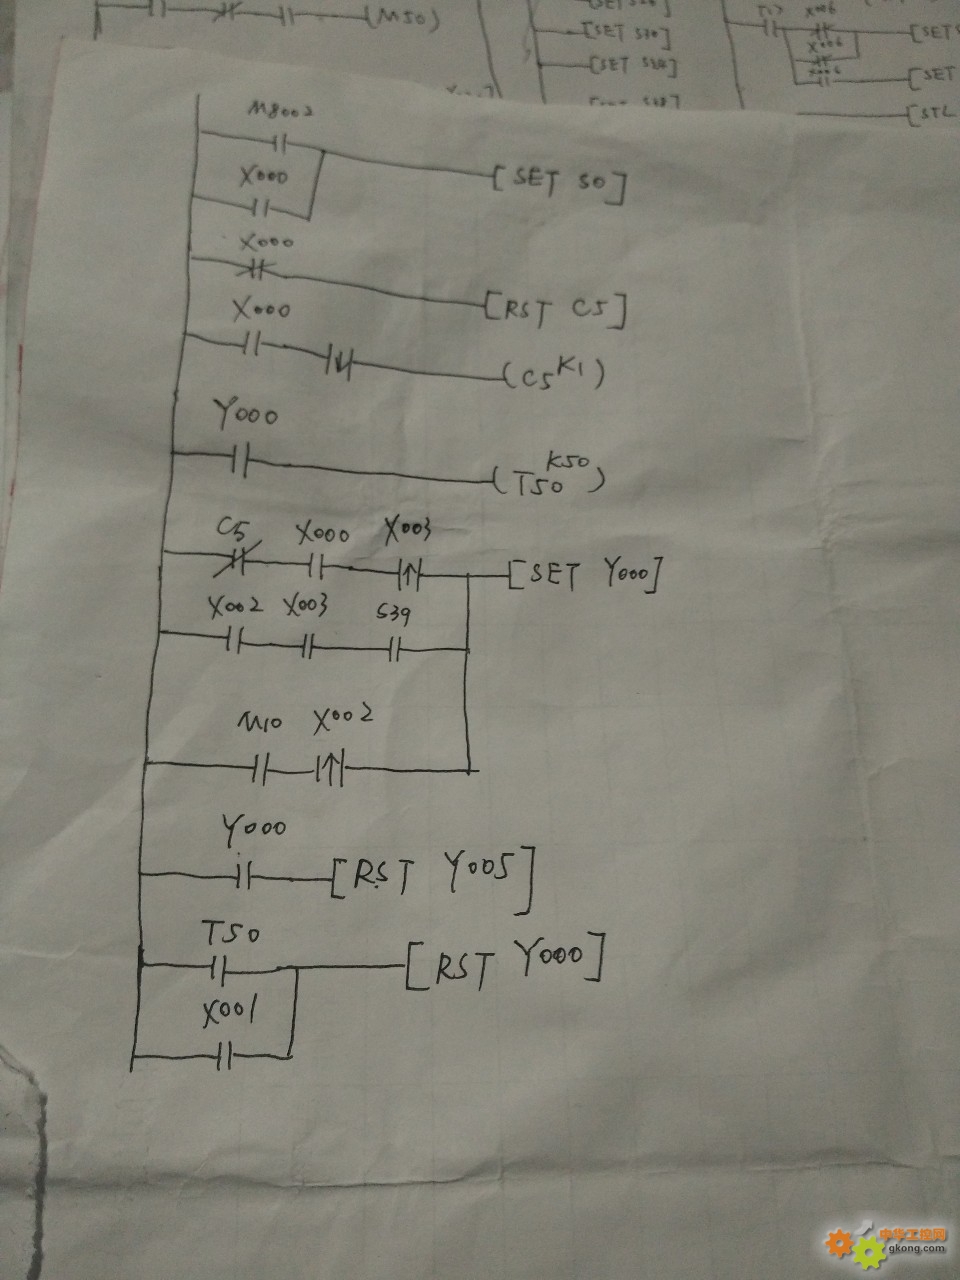 (M50)
[SET S30]
T12 X006
[SET
X006
X006
[SET
[STL
M8002
[SET S0]
X000
X000
[RST C5]
X000
(C5 K1)
Y000
(T50 K50)
C5 X000 X003
[SET Y000]
X002 X003 S39
M10 X002
Y000
[RST Y005]
T50
[RST Y000]
X001
中华工控网
gkong.com